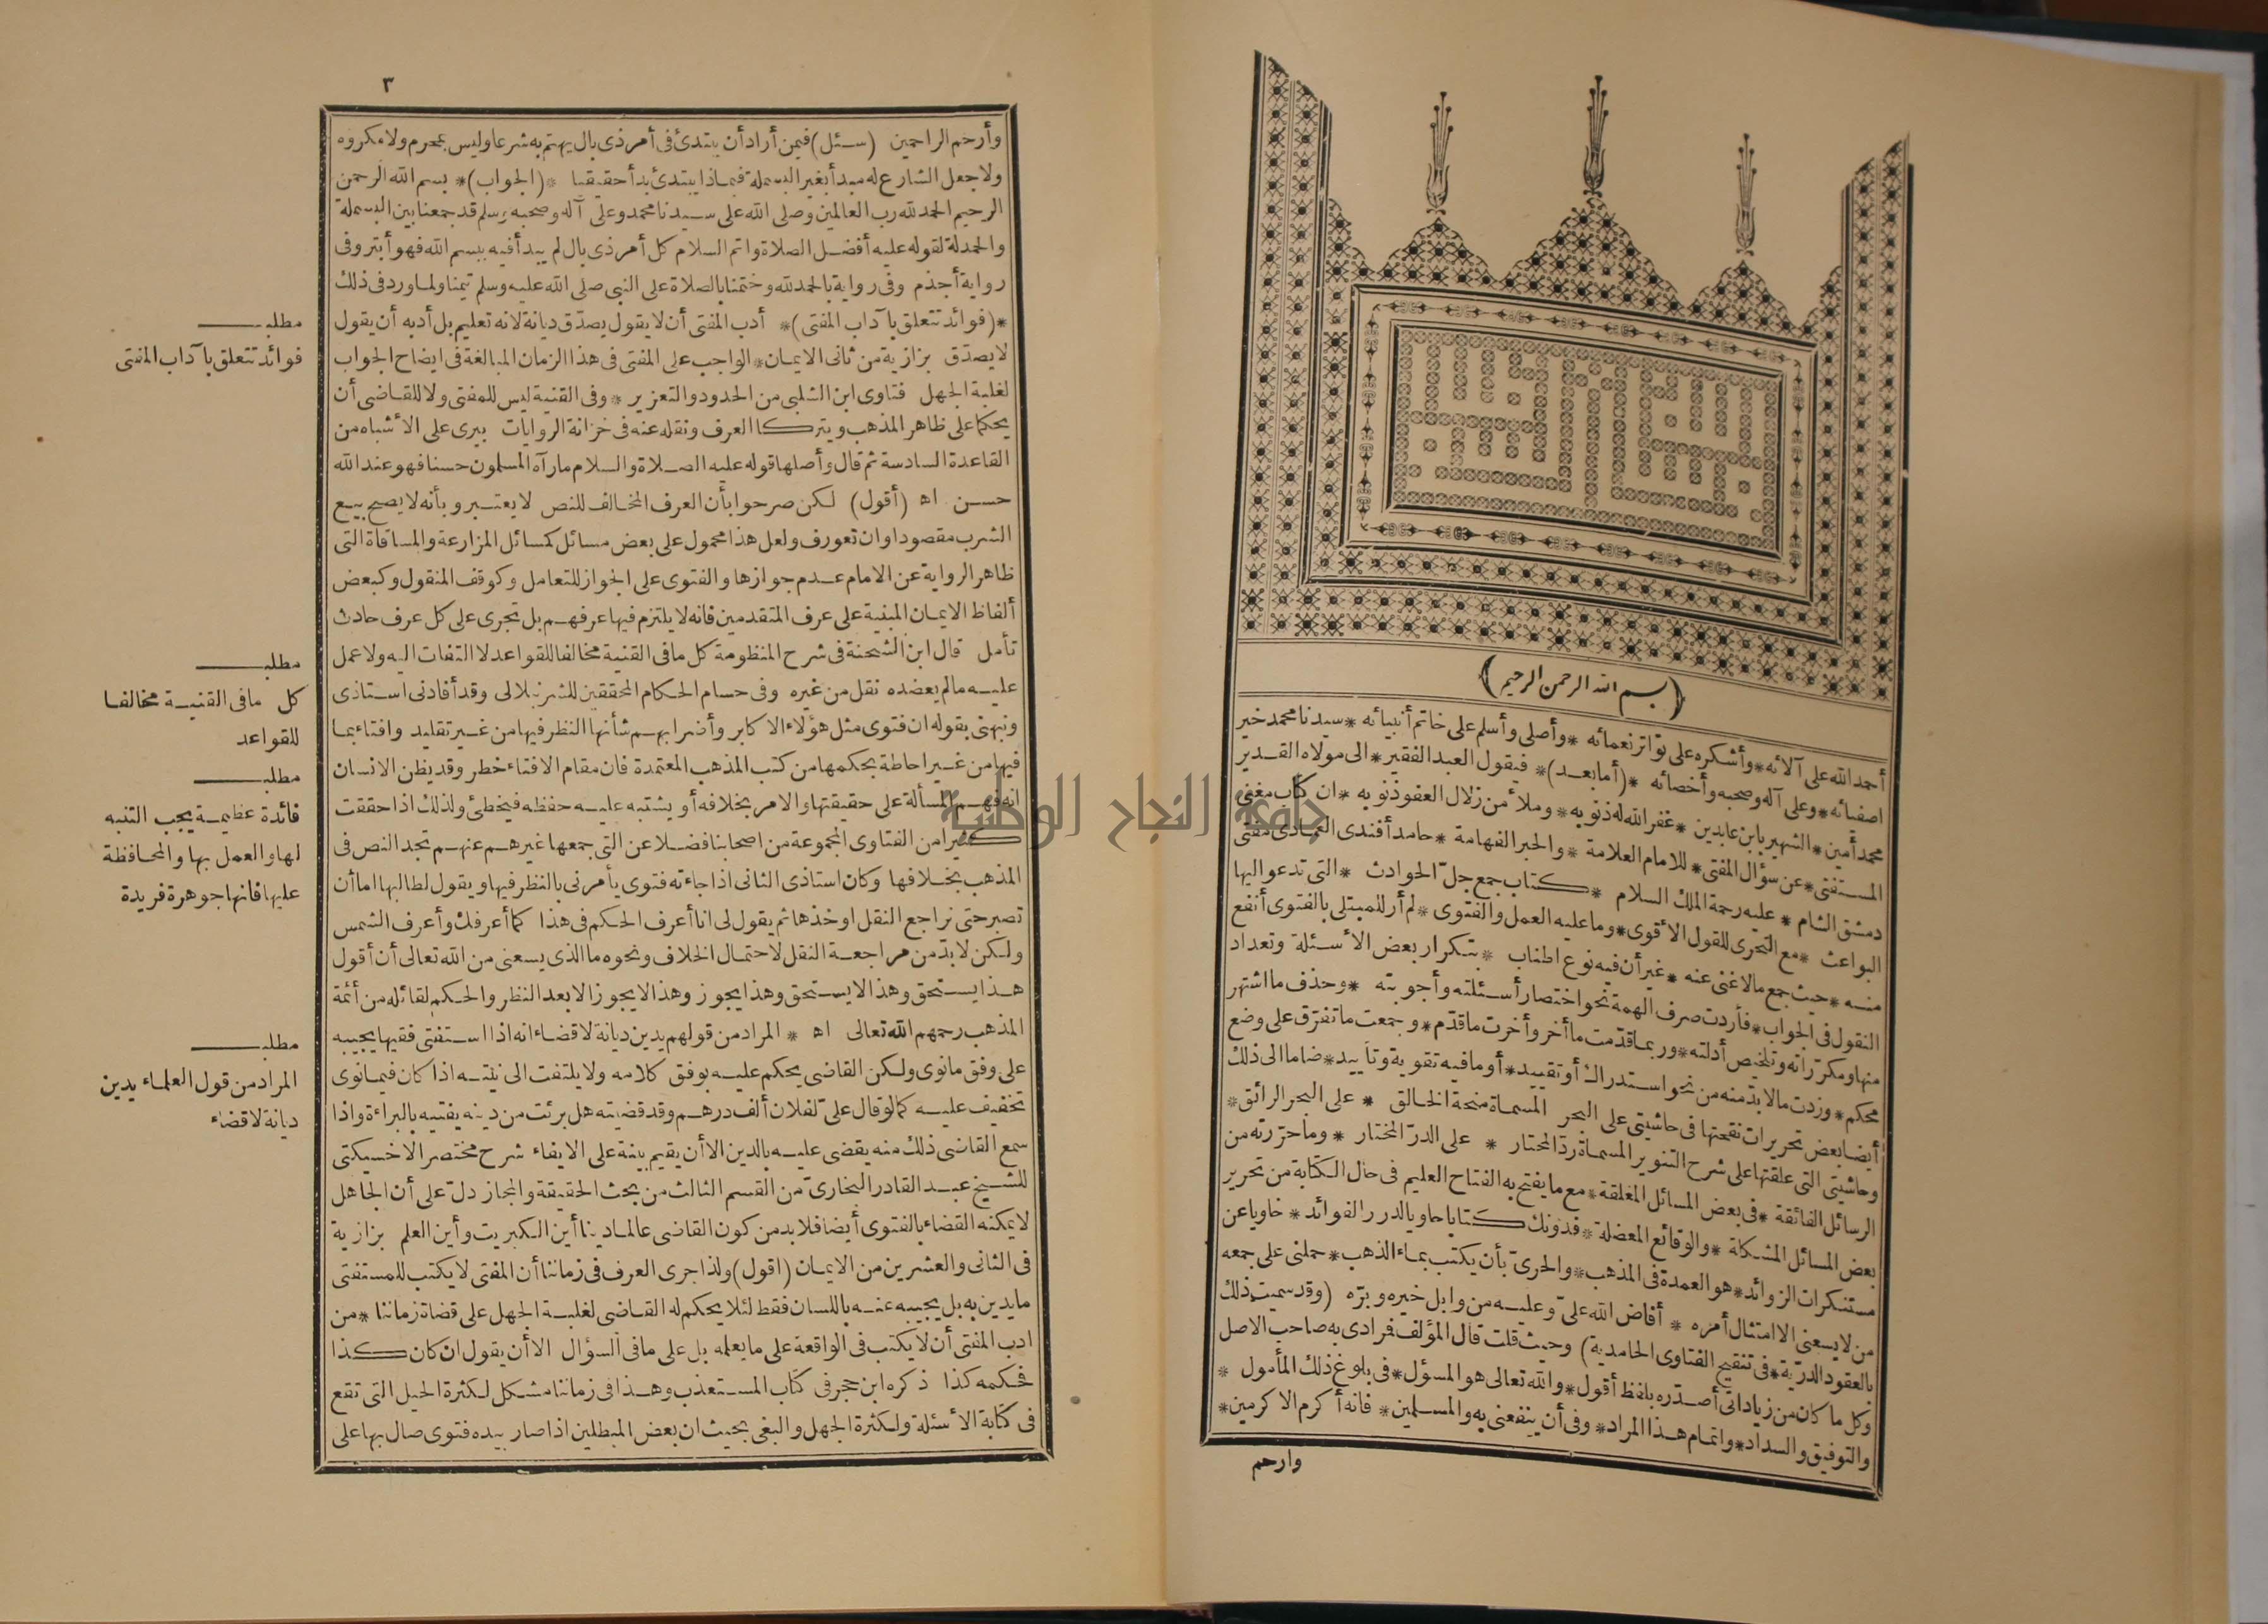 (بسم الله الرحمن الرحيم)
أحمد الله على آلائه * وأشكره على تواتر نعمائه * وأصلى وأسلم على خاتم أنبيائه * سيدنا محمد خير
اصفيائه * وعلى آله وصحبه وأخصائه * (أما بعد) * فيقول العبد الفقير * الى مولاه القدير
محمد أمين * الشهير بابن عابدين * غفر الله له ذنوبه * وملأ من زلال العفو ذنوبه * ان كتاب مغنى
المستفتى * عن سؤال المفتى * للامام العلامة * والحبر الفهامة * حامد أفندى العمادى مفتى
دمشق الشام * عليه رحمة الملك السلام * كتاب جمع جلّ الحوادث * التى تدعو اليها
البواعث * مع التحرى للقول الأقوى * وما عليه العمل والفتوى * لم أر للمبتلى بالفتوى أنفع
منه * حيث جمع مالا غنى عنه * غير أن فيه نوع اطناب * بتكرار بعض الأسئلة وتعداد
النقول فى الجواب * فأردت صرف الهمة نحو اختصار أسئلته وأجوبته * وحذف ما اشتهر
منها ومكرّراته وتلخيص أدلته * وربما قدّمت ما أخر وأخرت ما قدّم * وجمعت ما تفرّق على وضع
محكم * وزدت مالا بدّ منه من نحو استدراك أو تقييد * أو ما فيه تقوية وتأييد * ضاما الى ذلك
أيضا بعض تحريرات نقحتها فى حاشيتى على البحر المسماة منحة الخالق * على البحر الرائق *
وحاشيتى التى علقتها على شرح التنوير المسماة ردّ المحتار * على الدرّ المختار * وما حرّرته من
الرسائل الفائقة * فى بعض المسائل المغلقة * مع ما يفتح به الفتاح العليم فى حال الكتابة من تحرير
بعض المسائل المشكلة * والوقائع المعضلة * فدونك كتابا حاويا لدرر الفوائد * خاويا عن
مستنكرات الزوائد * هو العمدة فى المذهب * والحرىّ بأن يكتب بماء الذهب * حملنى على جمعه
من لا يسعنى الا امتثال أمره * أفاض الله علىّ وعليه من وابل خيره وبرّه (وقد سميت ذلك
بالعقود الدرّية * فى تنقيح الفتاوى الحامدية) وحيث قلت قال المؤلف فمرادى به صاحب الاصل
وكل ما كان من زياداتى أصدّره بلفظ أقول * والله تعالى هو المسؤل * فى بلوغ ذلك المأمول *
والتوفيق والسداد * واتمام هذا المراد * وفى أن ينفعنى به والمسلمين * فانه أكرم الاكرمين *
وارحم
٣
وأرحم الراحمين (سئل) فيمن أراد أن يبتدئ فى أمر ذى بال يهتم به شرعا وليس بمحرم ولا مكروه
ولا جعل الشارع له مبدأ بغير البسملة فبماذا يبتدئ بدأ حقيقيا * (الجواب) * بسم الله الرحمن
الرحيم الحمد لله رب العالمين وصلى الله على سيدنا محمد وعلى آله وصحبه وسلم قد جمعنا بين البسملة
والحمدلة لقوله عليه أفضل الصلاة واتم السلام كل أمر ذى بال لم يبدأ فيه ببسم الله فهو أبتر وفى
رواية أجذم وفى رواية بالحمد لله وختمنا بالصلاة على النبى صلى الله عليه وسلم تيمنا ولما ورد فى ذلك
* (فوائد تتعلق بآداب المفتى) * أدب المفتى أن لا يقول يصدّق ديانة لانه تعليم بل أدبه أن يقول
لا يصدّق بزازية من ثانى الايمان * الواجب على المفتى فى هذا الزمان المبالغة فى ايضاح الجواب
لغلبة الجهل فتاوى ابن الشلبى من الحدود والتعزير * وفى القنية ليس للمفتى ولا للقاضى أن
يحكما على ظاهر المذهب ويتركا العرف ونقله عنه فى خزانة الروايات بيرى على الأشباه من
القاعدة السادسة ثم قال وأصلها قوله عليه الصلاة والسلام ما رآه المسلمون حسنا فهو عند الله
حسن اه (أقول) لكن صرحوا بأن العرف المخالف للنص لا يعتبر وبأنه لا يصح بيع
الشرب مقصودا وان تعورف ولعل هذا محمول على بعض مسائل كمسائل المزارعة والمساقاة التى
ظاهر الرواية عن الامام عدم جوازها والفتوى على الجواز للتعامل وكوقف المنقول وكبعض
ألفاظ الايمان المبنية على عرف المتقدمين فانه لا يلتزم فيها عرفهم بل تجرى على كل عرف حادث
تأمل قال ابن الشحنة فى شرح المنظومة كل ما فى القنية مخالفا للقواعد لا التفات اليه ولا عمل
عليه ما لم يعضده نقل من غيره وفى حسام الحكام المحققين للشرنبلالى وقد أفادنى استاذى
ونبهنى بقوله ان فتوى مثل هؤلاء الاكابر وأضرابهم شأنها النظر فيها من غير تقليد وافتاء بما
فيها من غير احاطة بحكمها من كتب المذهب المعتمدة فان مقام الافتاء خطر وقد يظن الانسان
انه فهم المسألة على حقيقتها والامر بخلافه أو يشتبه عليه حفظه فيخطئ ولذلك اذا حققت
كثيرا من الفتاوى المجموعة من اصحابنا فضلا عن التى جمعها غيرهم عنهم تجد النص فى
المذهب بخلافها وكان استاذى الثانى اذا جاءته فتوى يأمرنى بالنظر فيها ويقول لطالبها اما أن
تصبر حتى نراجع النقل او خذها ثم يقول لى انا أعرف الحكم فى هذا كما أعرفك وأعرف الشمس
ولكن لا بدّ من مراجعة النقل لاحتمال الخلاف ونحوه ما الذى يسعنى من الله تعالى أن أقول
هذا يستحق وهذا لا يستحق وهذا يجوز وهذا لا يجوز الا بعد النظر والحكم لقائله من أئمة
المذهب رحمهم الله تعالى اه * المراد من قولهم يدين ديانة لا قضاء انه اذا استفتى فقيها يجيبه
على وفق ما نوى ولكن القاضى يحكم عليه بوفق كلامه ولا يلتفت الى نيته اذا كان فيما نوى
تخفيف عليه كما لو قال علىّ لفلان ألف درهم وقد قضيته هل برئت من دينه يفتيه بالبراءة واذا
سمع القاضى ذلك منه يقضى عليه بالدين الا أن يقيم بينة على الايفاء شرح مختصر الاخسيكتى
للشيخ عبد القادر البخارىّ من القسم الثالث من بحث الحقيقة والمجاز دلّ على أن الجاهل
لا يمكنه القضاء بالفتوى أيضا فلا بد من كون القاضى عالما دينا أين الكبريت وأين العلم بزازية
فى الثانى والعشرين من الايمان (اقول) ولذا جرى العرف فى زماننا أن المفتى لا يكتب للمستفتى
ما يدين به بل يجيبه عنه باللسان فقط لئلا يحكم له القاضى لغلبة الجهل على قضاة زماننا * من
ادب المفتى أن لا يكتب فى الواقعة على ما يعلمه بل على ما فى السؤال الا أن يقول ان كان كذا
فحكمه كذا ذكره ابن حجر فى كتاب المستعذب وهذا فى زماننا مشكل لكثرة الحيل التى تقع
فى كتابة الأسئلة ولكثرة الجهل والبغى بحيث ان بعض المبطلين اذا صار بيده فتوى صال بها على
مطلب
فوائد تتعلق بآداب المفتى
مطلب
كل ما فى القنية مخالفا
للقواعد
مطلب
فائدة عظيمة يجب التنبه
لها والعمل بها والمحافظة
عليها فانها جوهرة فريدة
مطلب
المراد من قول العلماء يدين
ديانة لا قضاء
جامعة النجاح الوطنية